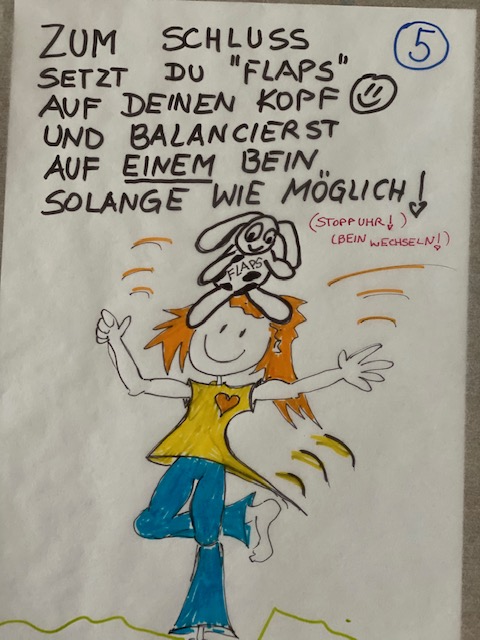 ZUM SCHLUSS
5
SETZT DU "FLAPS"
AUF DEINEN KOPF
UND BALANCIERST
AUF EINEM BEIN
SOLANGE WIE MÖGLICH!
(STOPPUHR!)
(BEIN WECHSELN!)
FLAPS